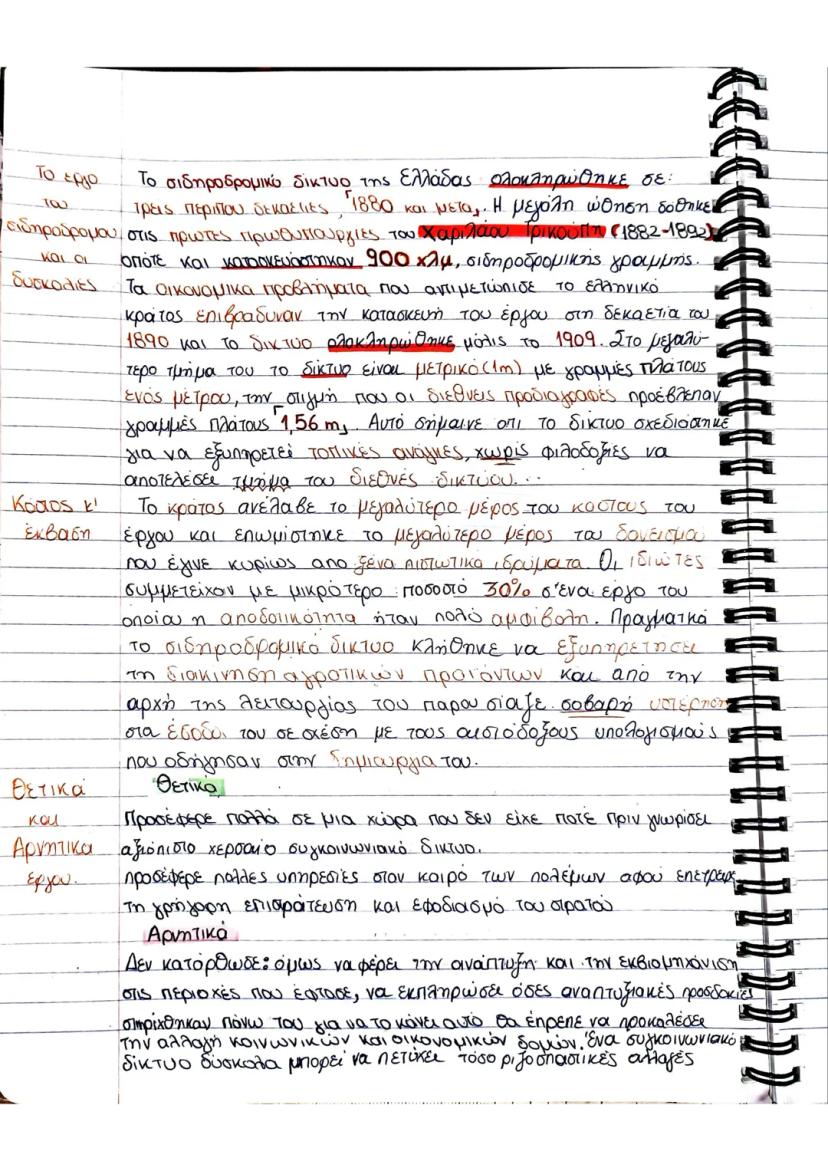 Το έργο
του
σιδηροδρόμου
και οι
δυσκολίες
Το σιδηροδρομικό δίκτυο της Ελλάδας ολοκληρώθηκε σε:
τρεις περίπου δεκαετίες, 1880 και μετά. Η μεγάλη ώθηση δόθηκε
στις πρώτες πρωθυπουργίες του Χαριλάου Τρικούπη (1882-1892)
οπότε και κατασκευάστηκαν 900 χλμ, σιδηροδρομικής γραμμής.
Τα οικονομικά προβλήματα που αντιμετώπισε το ελληνικό
κράτος επιβράδυναν την κατασκευή του έργου στη δεκαετία του
1890 και το δίκτυο ολοκληρώθηκε μόλις το 1909. Στο μεγαλύ-
τερο τμήμα του το δίκτυο είναι μετρικό (1m) με γραμμές πλάτους
ενός μέτρου, την στιγμή που οι διεθνείς προδιαγραφές προέβλεπαν
γραμμές πλάτους 1,56 m. Αυτό σήμαινε οτι το δίκτυο σχεδιάστηκε
για να εξυπηρετεί τοπικές ανάγκες, χωρίς φιλοδοξίες να
αποτελέσει τμήμα του διεθνές δικτύου...
Κόστος κ'
έκβαση
Το κράτος ανέλαβε το μεγαλύτερο μέρος του κόστους του
έργου και επωμίστηκε το μεγαλύτερο μέρος του δανεισμα
που έγινε κυρίως απο ξένα πιστωτικά ιδρύματα. Οι ιδιώτες
συμμετείχαν με μικρότερο ποσοστό 30% σ'ένα έργο του
οποίου η αποδοτικότητα ήταν πολύ αμφίβολη. Πραγματικά
το σιδηροδρομικό δίκτυο κλήθηκε να εξυπηρετήσει
τη διακίνηση αγροτικών προϊόντων και από την
αρχή της λειτουργίας του παρουσίαζε σοβαρή υστέρηση
στα έσοδα του σε σχέση με τους αισιόδοξους υπολογισμούς
που οδήγησαν στην δημιουργία του.
Θετικά
και
Αρνητικά
έργου.
Θετικά
Προσέφερε πολλά σε μια χώρα που δεν είχε ποτέ πριν γνωρίσει
αξιόπιστο χερσαίο συγκοινωνιακό δίκτυο.
προσέφερε πολλές υπηρεσίες στον καιρό των πολέμων αφού επέτρεψε
τη γρήγορη επιστράτευση και εφοδιασμό του στρατού
Αρνητικά
Δεν κατόρθωσε: όμως να φέρει την ανάπτυξη και την εκβιομηχάνιση
στις περιοχές που έφτασε, να εκπληρώσει όσες αναπτυξιακές προσδοκίες
στηρίχθηκαν πάνω του για να το κάνει αυτό θα έπρεπε να προκαλέσει
την αλλαγή κοινωνικών και οικονομικών δομών. Ένα συγκοινωνιακό
δίκτυο δύσκολα μπορεί να πετύχει τόσο ριζοσπαστικές αλλαγές